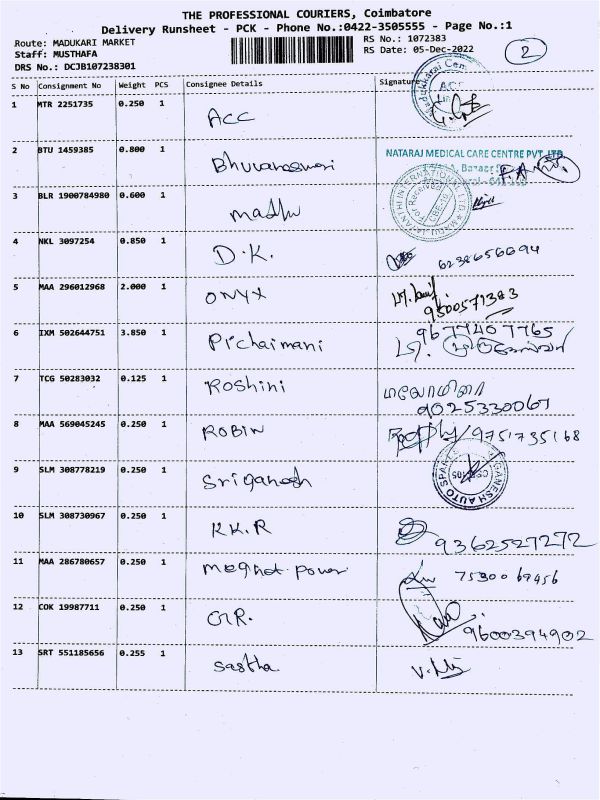 THE PROFESSIONAL COURIERS, Coimbatore
Delivery Runsheet - PCK - Phone No.:0422-3505555 - Page No.:1
Route: MADUKARI MARKET
Staff: MUSTHAFA
DRS No.: DCJB107238301
RS No.: 1072383
RS Date: 05-Dec-2022
2
S No Consignment No Weight PCS Consignee Details Signature
1 MTR 2251735 0.250 1 ACC
ACC
2 BTU 1459385 0.800 1 Bhuvaneswari
NATARAJ MEDICAL CARE CENTRE PVT. LTD
3 BLR 1900784980 0.600 1 madhu
4 NKL 3097254 0.850 1 D.K. 6238656694
5 MAA 296012968 2.000 1 ONYX
9500571383
6 IXM 502644751 3.850 1 Pichaimani
9677407765
7 TCG 50283032 0.125 1 Roshini
9025330067
8 MAA 569045245 0.250 1 ROBIN 9751735168
9 SLM 308778219 0.250 1 Sriganesh
GANESH AUTO SPARES
10 SLM 308730967 0.250 1 KK.R 9362527272
11 MAA 286780657 0.250 1 magnet power 75300 69456
12 COK 19987711 0.250 1 GR.
9600394902
13 SRT 551185656 0.255 1 Sastha